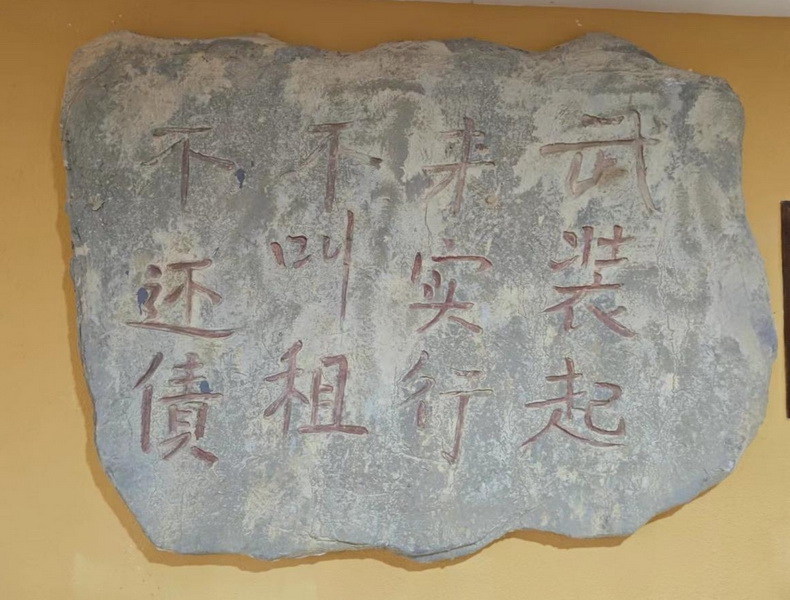 武装起
来实行
不叫租
不还債